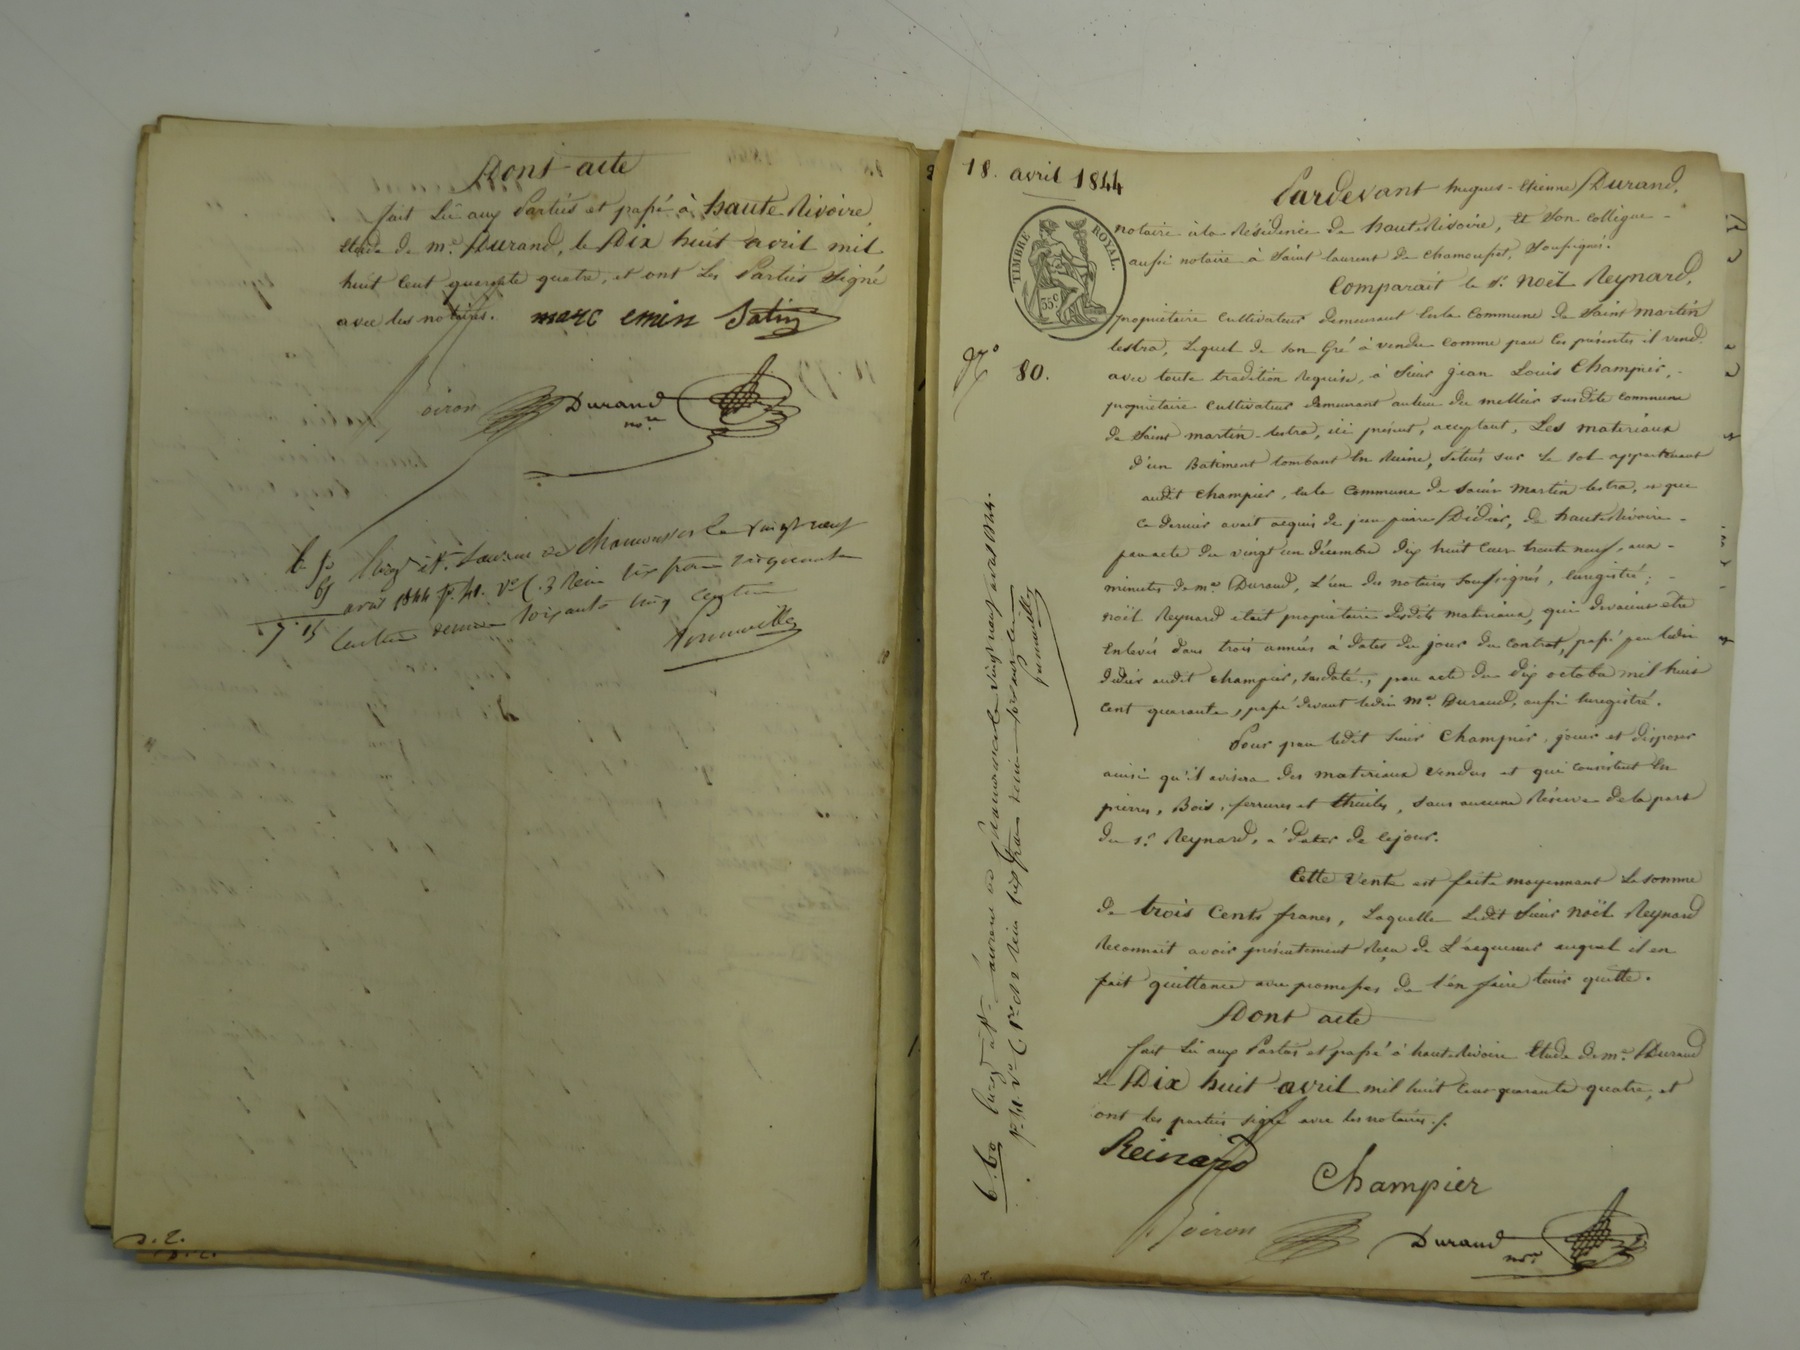 Dont acte
fait Lû aux Parties et passé à haute Rivoire,
Etude de me. Durand, le Dix huit avril mil
huit Cent quarante quatre, et ont Les Parties signé
avec les notaires. marc emin Satin
oiron Durand
nore
St. Laurent de Chamousset le vingt neuf
avril 1844 six francs cinquante
centimes soixante cinq centimes
D. E.
18. avril 1844
Pardevant hugues-Etienne Durand,
notaire à la Résidence de haute Rivoire, Et Son Collègue
aussi notaire à Saint Laurent de Chamousset, Soussignés.
Comparait le sr. noël Reynard,
TIMBRE ROYAL.
35c
propriétaire Cultivateur demeurant en la Commune de Saint martin
lestra, Lequel de son Gré à vendu Comme par Ces présentes il vend
No 80.
avec toute tradition Requise, à Sieur jean Louis Champier,
propriétaire Cultivateur demeurant au lieu du mellier susdite commune
de Saint martin-lestra, ici présent, acceptant, Les materiaux
d'un Batiment tombant En Ruine, situés sur Le sol appartenant
audit Champier, en la Commune de Saint Martin lestra, et que
Ce dernier avait acquis de jean pierre Didier, de haute Rivoire
par acte du vingt un décembre dix huit Cent trente neuf, aux
minutes de me. Durand, L'un des notaires soussignés, Enregistré;
noël Reynard était propriétaire desdits materiaux, qui devaient être
Enlevés dans trois années à dater du jour du Contrat, passé par ledit
Didier audit Champier, susdaté, par acte du dix octobre mil huit
Cent quarante, passé devant ledit Me. Durand, aussi Enregistré.
Pour par ledit Sieur Champier, jouir et disposer
ainsi qu'il avisera des materiaux vendus et qui Consistent En
pierres, Bois, ferrures et thuiles, sans aucune Réserve de la part
du sr. Reynard, à Dater de Ce jour.
Cette Vente est faite moyennant La somme
de trois Cents francs, Laquelle Ledit Sieur Noël Reynard
Reconnait avoir présentement Reçu de L'acquereur auquel il en
fait quittance avec promesses de l'en faire tenir quitte.
Dont acte
fait Lû aux Parties et passé à haute Rivoire Etude de me. Durand
Le Dix huit avril mil huit Cent quarante quatre, et
ont les parties signé avec les notaires.
Reinard
Champier
oiron Durand
nore
6.60
D. E.